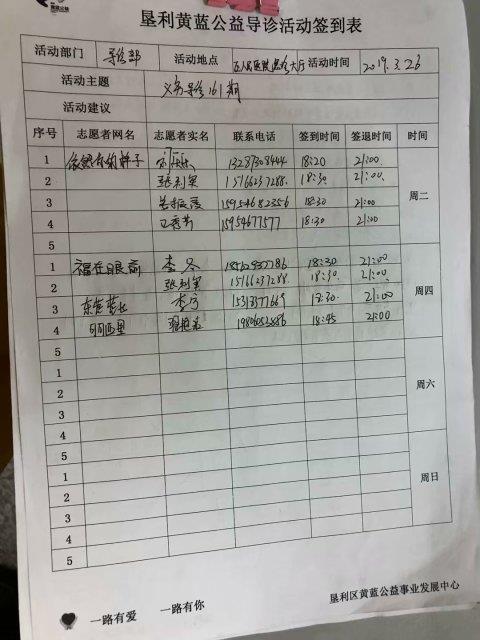 垦利黄蓝公益导诊活动签到表
活动部门 导诊部 活动地点 人民医院 大厅 活动时间 2019.3.26
活动主题 义务导诊161期
活动建议
序号 志愿者网名 志愿者实名 联系电话 签到时间 签退时间 时间
1 依然有的样子 13287308444 18:20 21:00
2 张利军 15166237288 18:30 21:00
周二
3 15954682356 18:30 21:00
4 15954677577 18:30 21:00
5
1 福在眼前 李冬 18562993786 18:30 21:00
2 张利军 15166237288 18:30 21:00
周四
3 李宁 18:30 21:00
4 18:45 21:00
5
1
2
周六
3
4
5
1
2
周日
3
4
5
垦利区黄蓝公益事业发展中心
一路有爱 一路有你